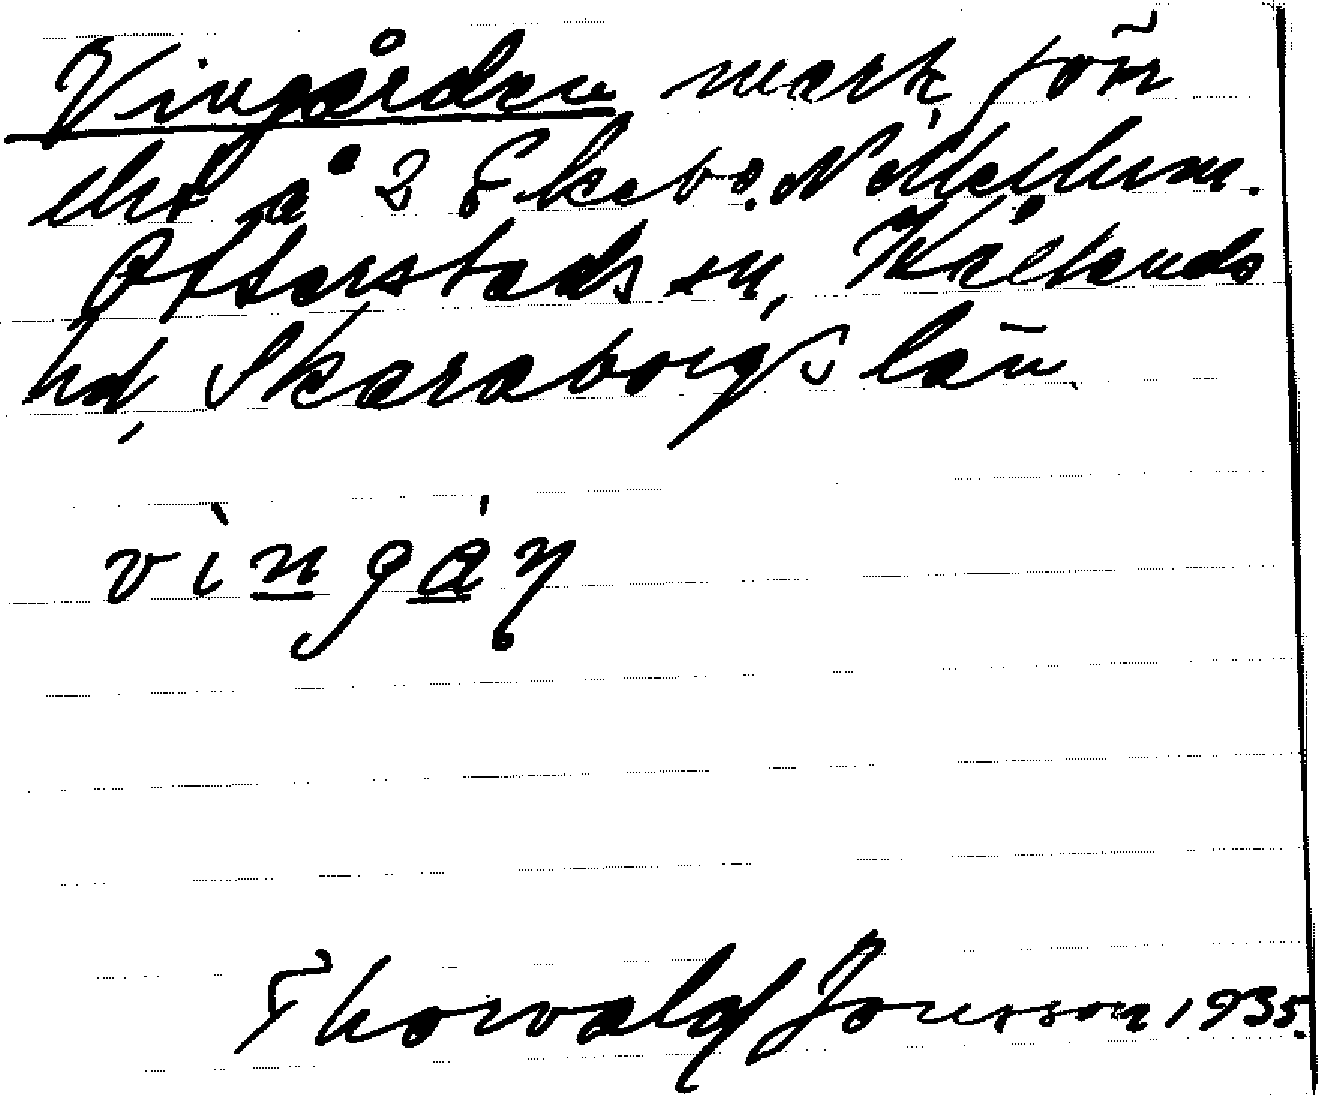 Vingården mark förr
thf å 2 Ekebo. N Mellum.
Otterstads sn, Kållands
hd, Skaraborgs län
vìngáṇ
Thorvald Jonsson 1935.